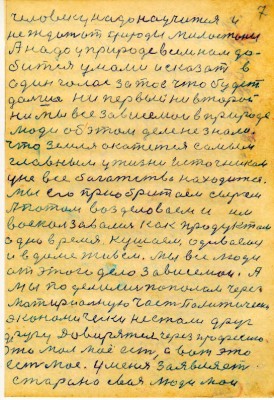 7
человеку надо научится и
не ждать от природы милостыни
А надо у природе всем нам до-
бится умом и сказать в
один голос за тое что будет
дальше ни первый ни второй
ни мы все зависемое в природе
люди об этом деле не знали
что земля окажется самым
главным у жизни источником
у не все богатства находится.
мы его приобритаем сырем
А потом возделоваем и им
как продуктом
одно время. кушаем, одеваем
и в доме живем. мы все люди
от этого дело зависемои. А
мы поделились пополам через
матириалную часть Политически
экономически не стали друг
другу доверятся через професию
это мол моё есть, а вот это
есть мое. у меня заявляет
старано своя люди мои